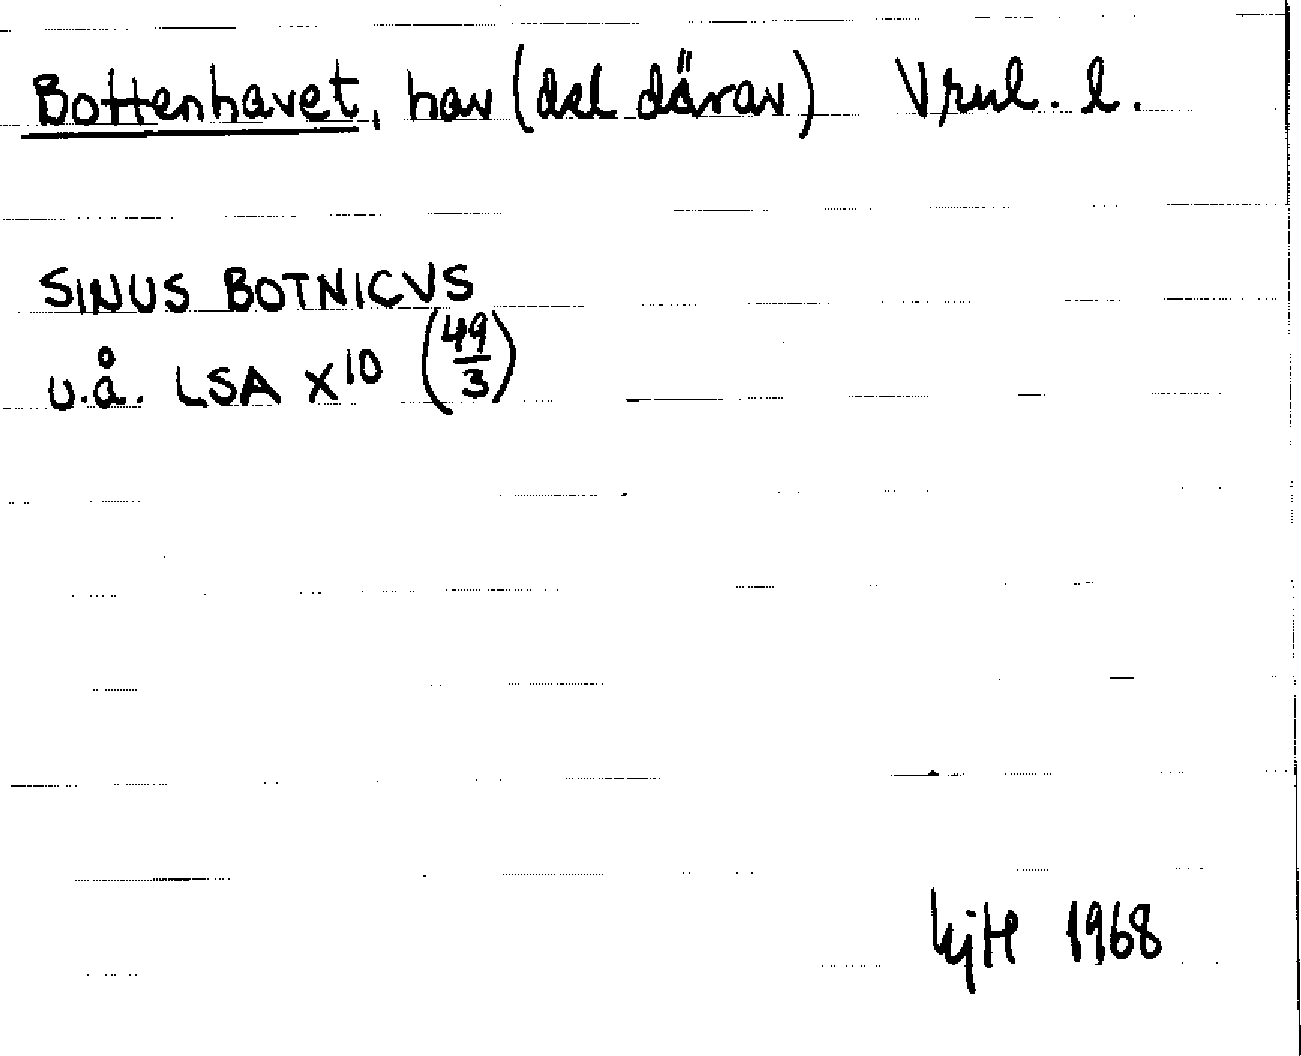 Bottenhavet, hav (del därav) Vrml. l.
SINUS BOTNICVS
u.å. LSA X¹⁰ (49/3)
1968